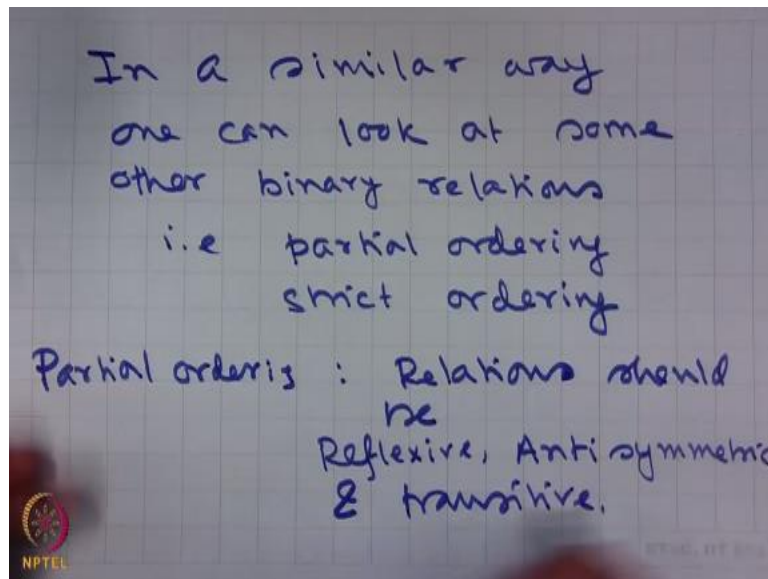 In a similar way
one can look at some
other binary relations
i.e partial ordering
strict ordering
Partial orderis : Relations should
be
Reflexive, Anti symmetric
& transitive.
NPTEL